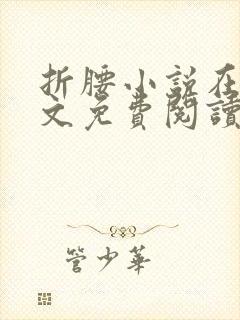 折腰小说在
文免費閱讀
管少華